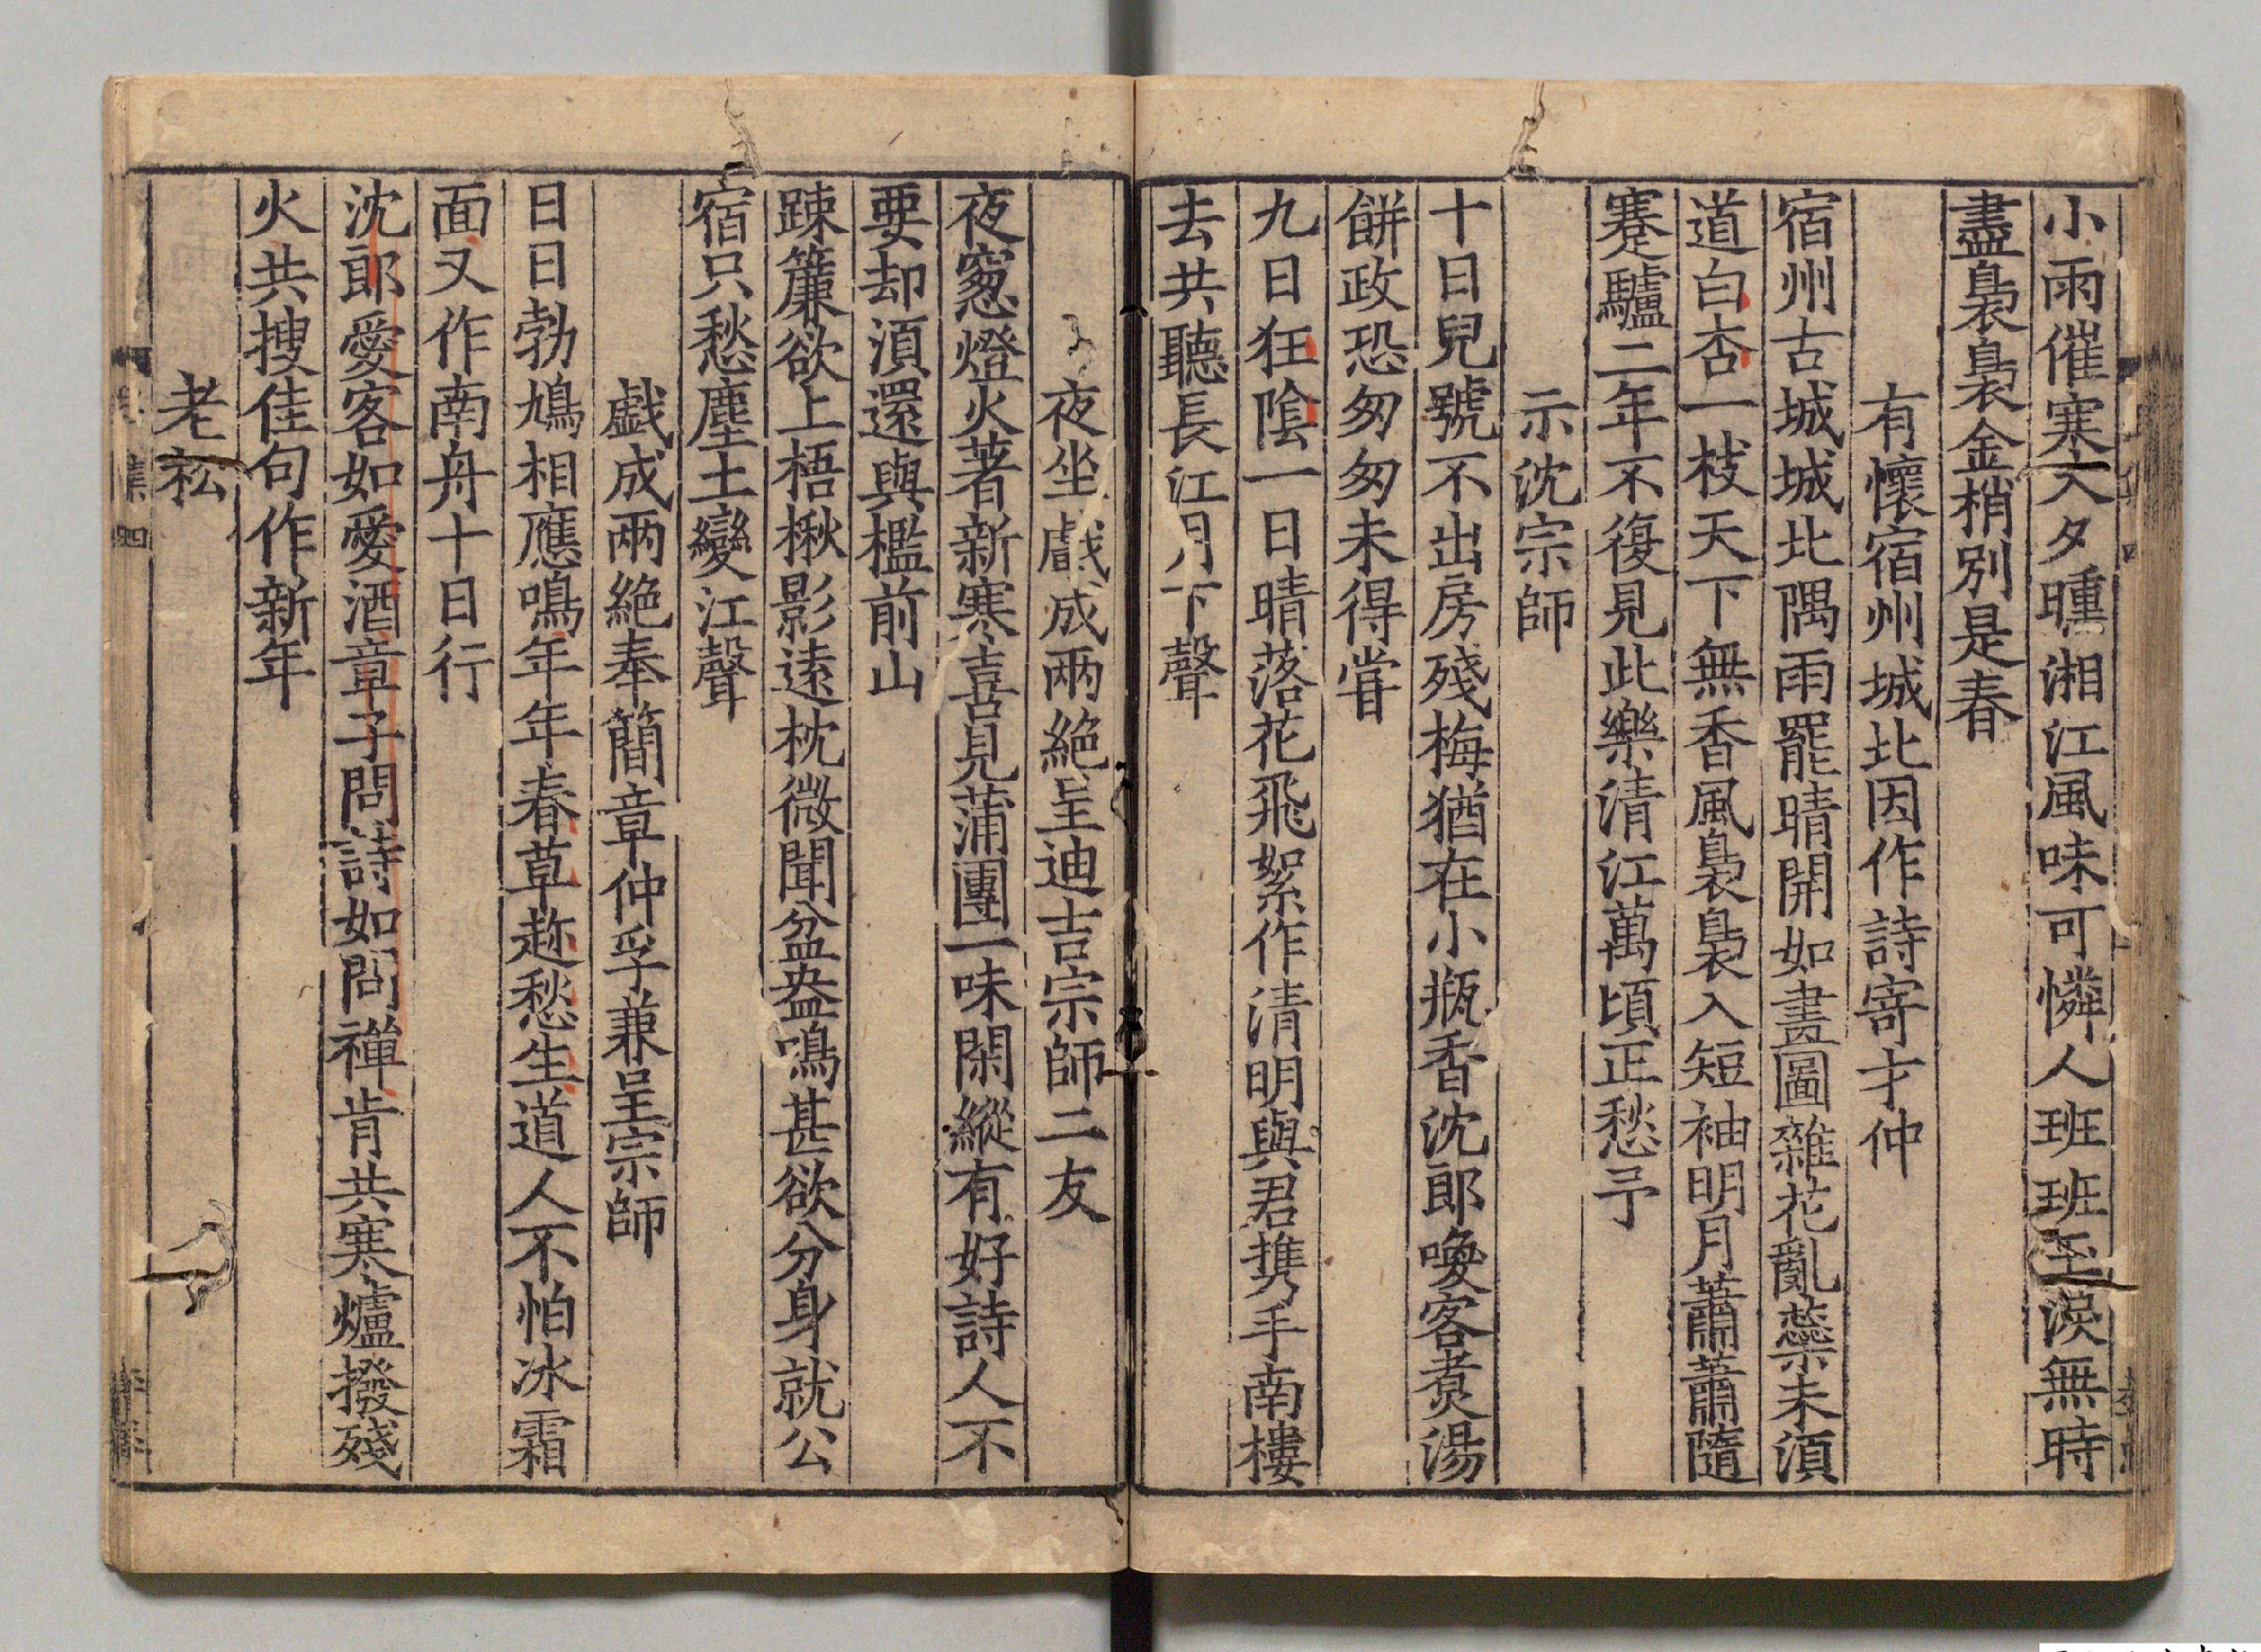 小雨催寒入夕曛湘江風味可憐人班班玉淚無時
盡裊裊金梢別是春
有懷宿州城北因作詩寄才仲
宿州古城城北隅雨罷晴開如畫圖雜花亂蘂未須
道白杏一枝天下無香風裊裊入短袖明月蕭蕭隨
蹇驢二年不復見此樂清江萬頃正愁予
示沈宗師
十日兒號不出房殘梅猶在小瓶香沈郎喚客煮湯
餅政恐匆匆未得嘗
九日狂陰一日晴落花飛絮作清明與君携手南樓
去共聽長江月下聲
夜坐戲成兩絶呈迪吉宗師二友
夜窻燈火著新寒喜見蒲團一味閑縱有好詩人不
要却須還與檻前山
踈簾欲上梧楸影遠枕微聞盆盎鳴甚欲分身就公
宿只愁塵土變江聲
戱成兩絶奉簡章仲孚兼呈宗師
日日勃鳩相應鳴年年春草趂愁生道人不怕冰霜
面又作南舟十日行
沈郎愛客如愛酒章子問詩如問禪肯共寒爐撥殘
火共搜佳句作新年
老松